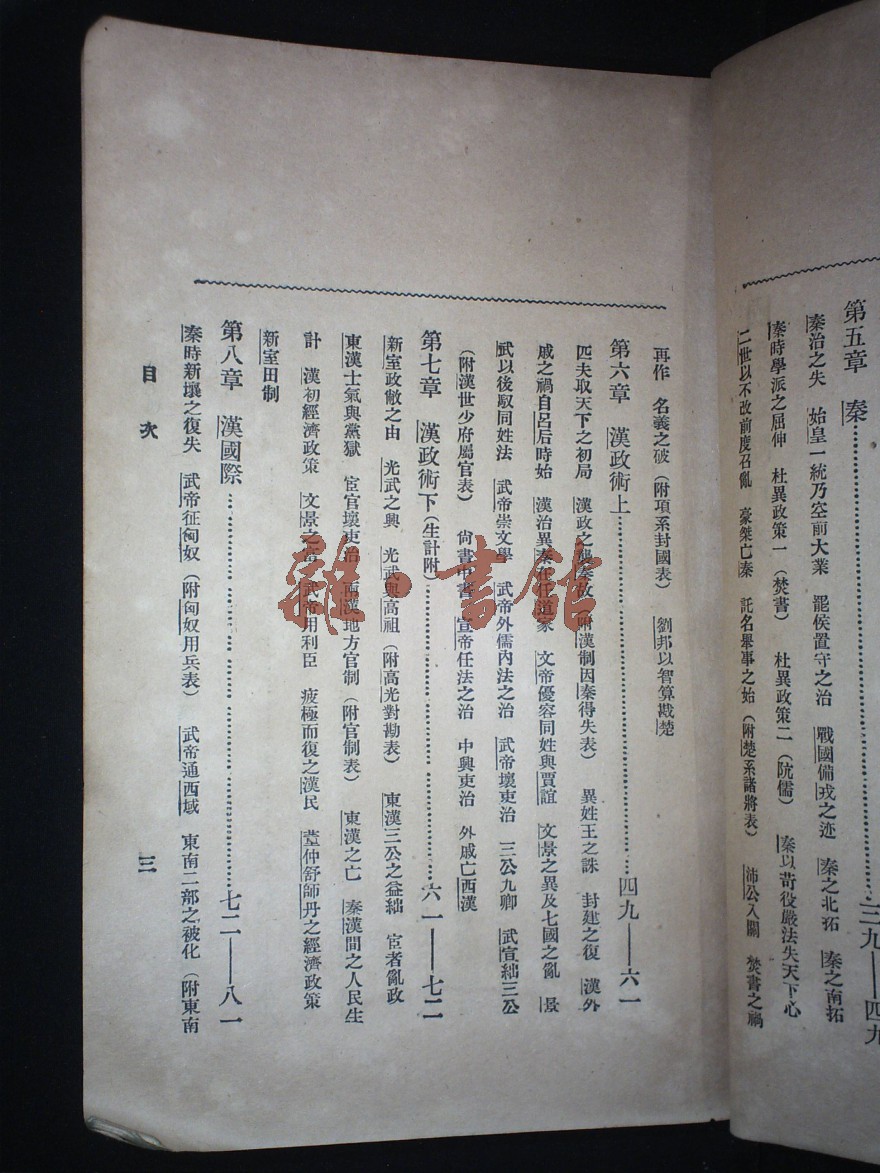 第五章　秦……三九——四九
秦治之失　始皇一統乃空前大業　罷侯置守之治　戰國備戎之迹　秦之北拓　秦之南拓
秦時學派之屈伸　杜異政策一（焚書）　杜異政策二（阬儒）　秦以苛役嚴法失天下心
二世以不改前度召亂　豪桀亡秦　託名舉事之始（附楚系諸將表）　沛公入關　焚書之禍
再作　名義之破（附項系封國表）　劉邦以智算戡楚
第六章　漢政術上……四九——六一
匹夫取天下之初局　漢政之襲秦故（附漢制因秦得失表）　異姓王之誅　封建之復　漢外
戚之禍自呂后時始　漢治異秦在任道家　文帝優容同姓與賈誼　文景之異及七國之亂　景
武以後馭同姓法　武帝崇文學　武帝外儒內法之治　武帝壞吏治　三公九卿　武宣絀三公
（附漢世少府屬官表）　尚書中書　宣帝任法之治　中興吏治　外戚亡西漢
第七章　漢政術下（生計附）……六一——七二
新室政敝之由　光武之興　光武與高祖（附高光對勘表）　東漢三公之益絀　宦者亂政
東漢士氣與黨獄　宦官壞吏治　兩漢地方官制（附官制表）　東漢之亡　秦漢間之人民生
計　漢初經濟政策　文景之富　武帝用利臣　疲極而復之漢民　董仲舒師丹之經濟政策
新室田制
第八章　漢國際……七二——八一
秦時新壤之復失　武帝征匈奴（附匈奴用兵表）　武帝通西域　東南二部之被化（附東南
目次
三
雜·書館